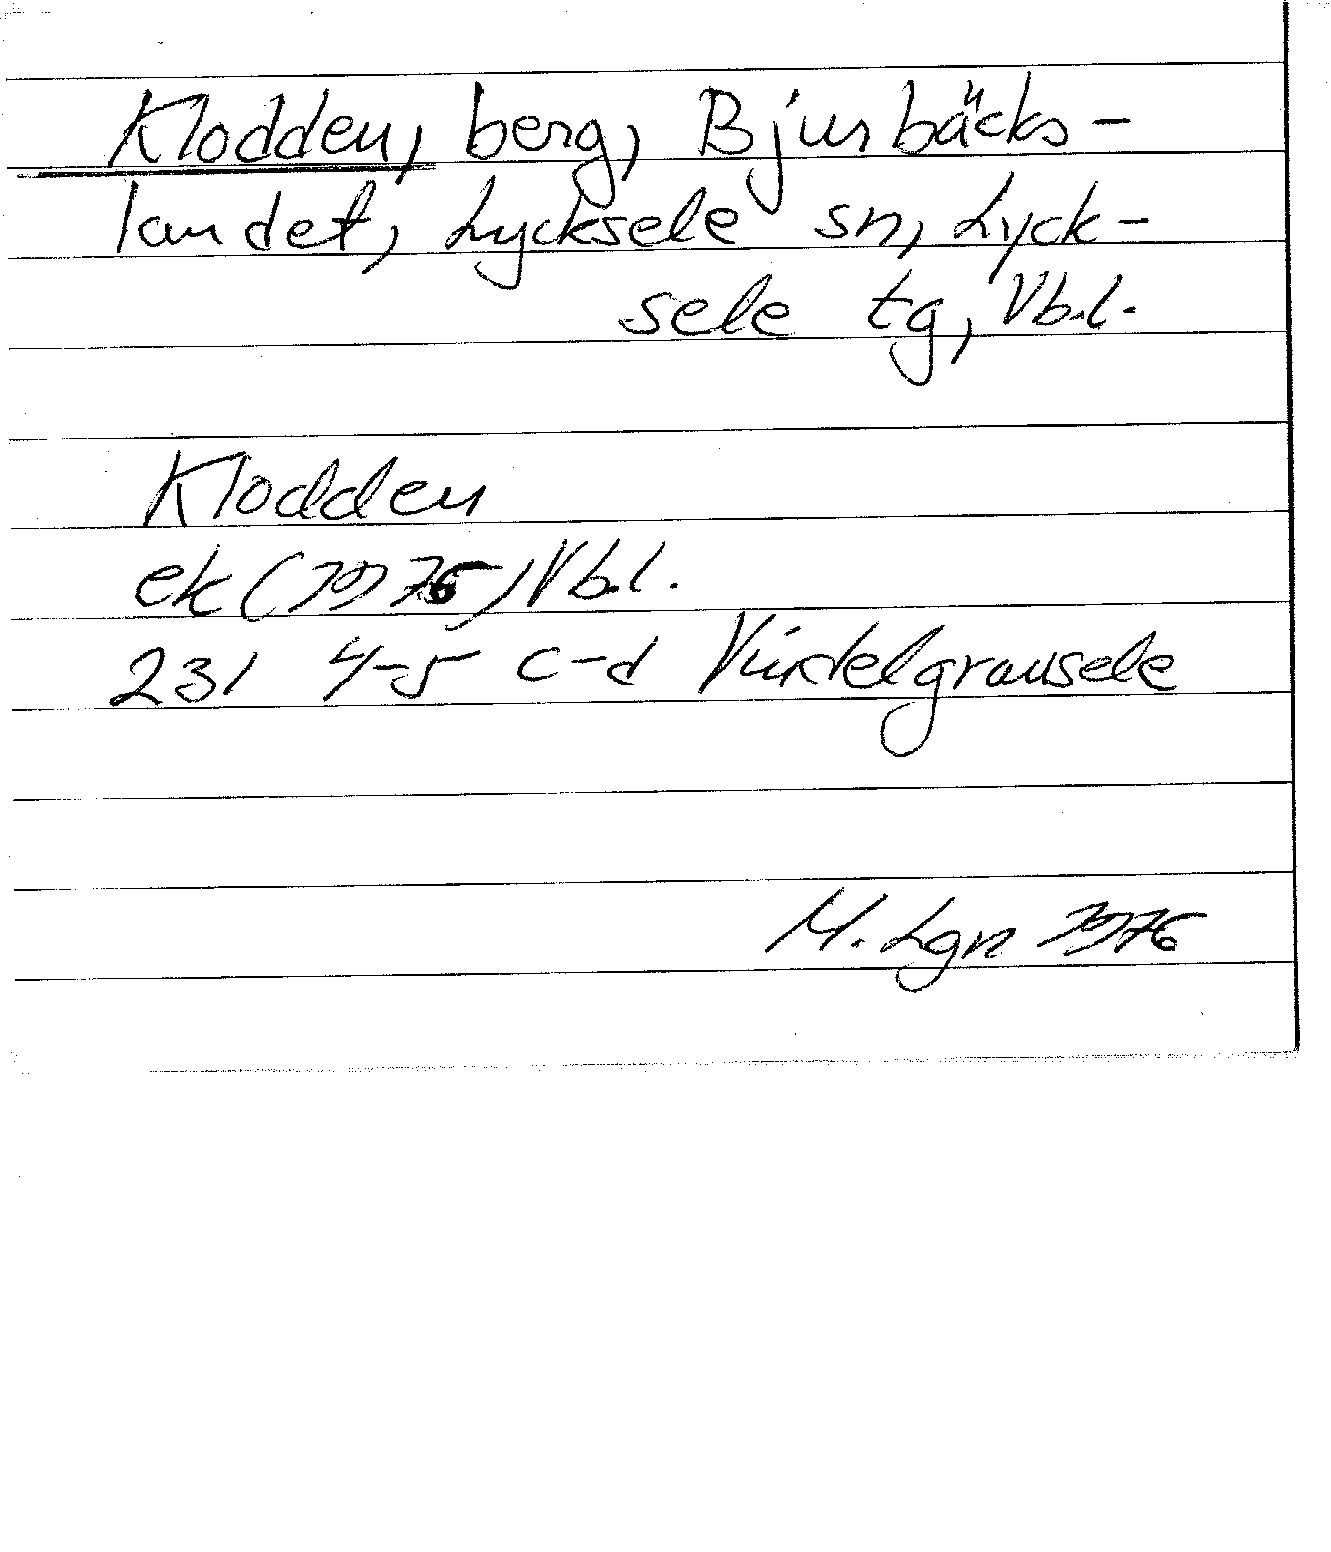 Klodden, berg, Bjurbäcks-
landet, Lycksele sn, Lyck-
sele tg, Vb.l.
Klodden
ek (1976) Vb.l.
231 4-5 c-d Vindelgransele
M. Lgn 1976